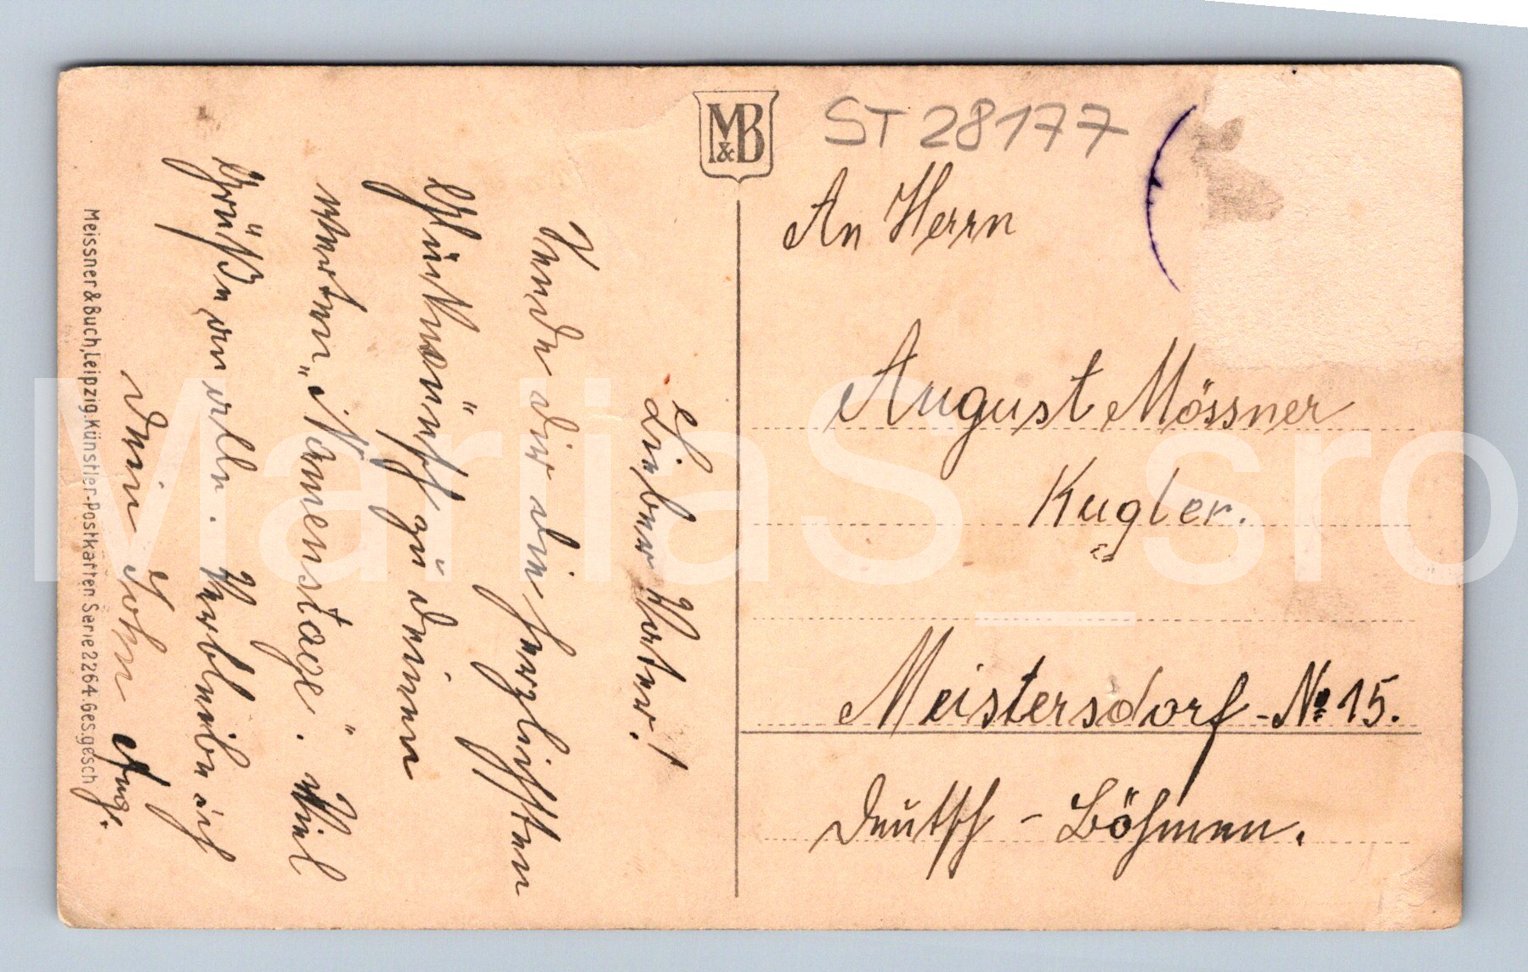 Lieber Vater!
Sende dir die herzlichsten
Glückwünsch zu deinem
werten „Namenstage". Viel
Grüße an alle. Verbleibe ich
dein Sohn Aug.
Meissner & Buch, Leipzig. Künstler-Postkarten Serie 2264. Ges. gesch
M&B
ST 28177
An Herrn
August Mössner
Kugler.
Meistersdorf - No 15.
Deutsch - Böhmen.
MarliaS_sro